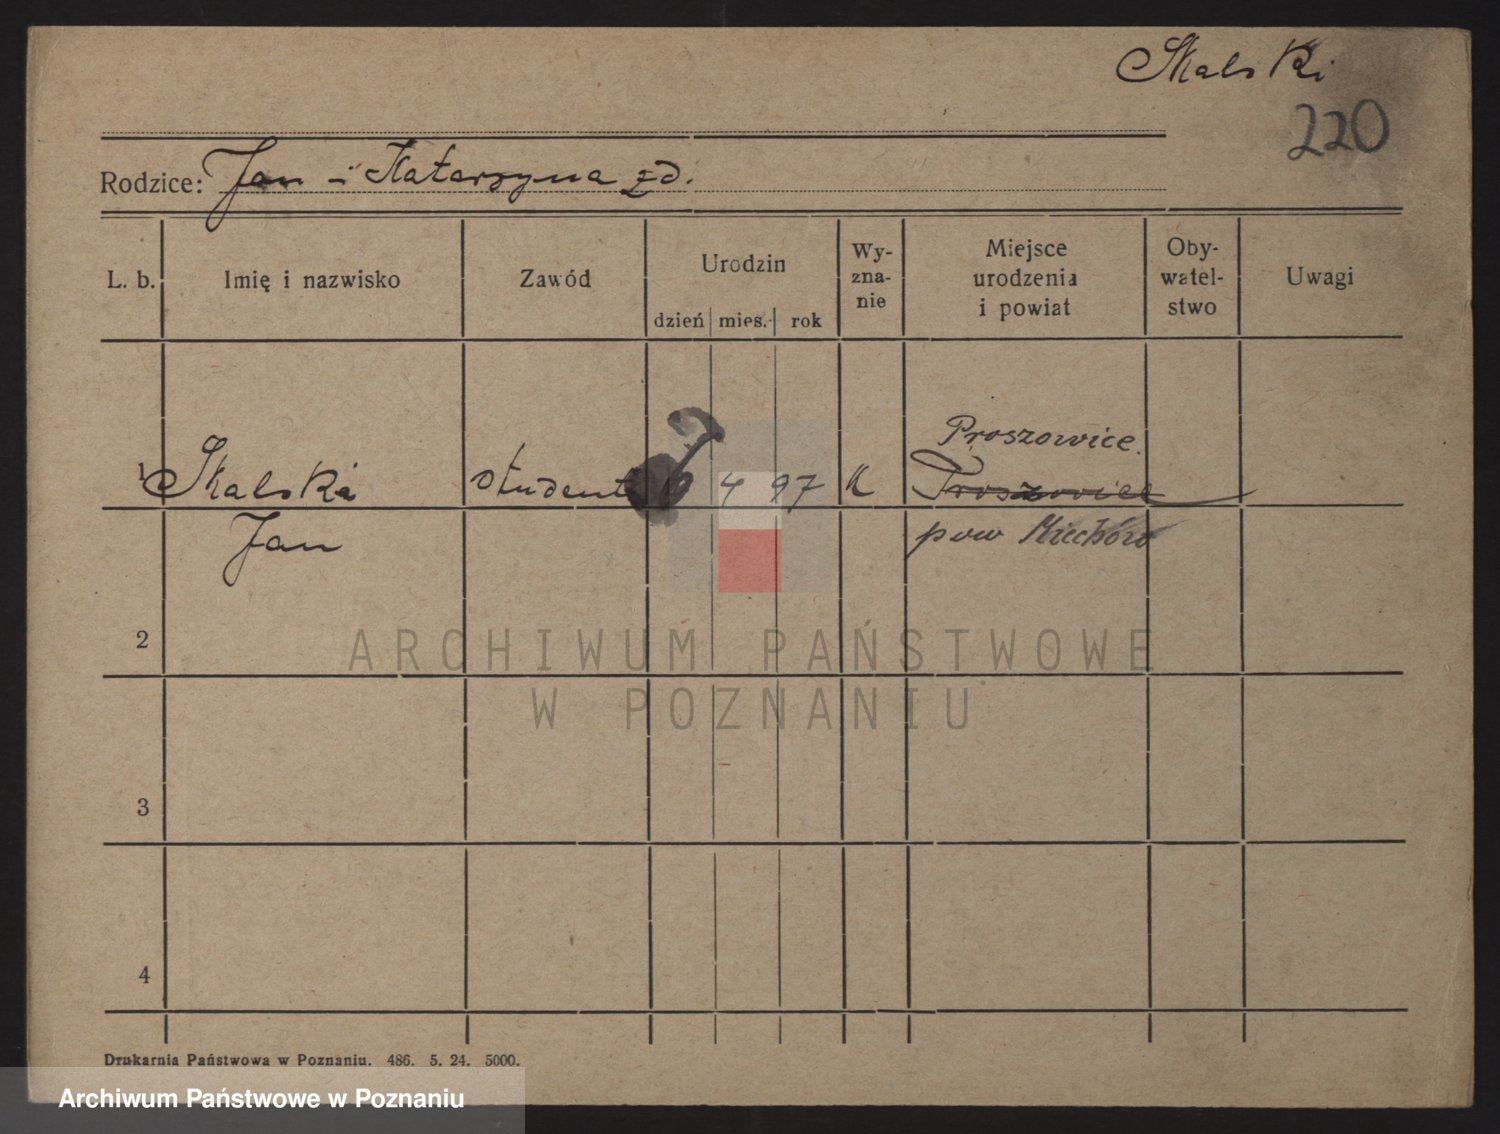 Skalski
220
Rodzice: Jan i Katarzyna zd.
L. b. Imię i nazwisko Zawód Urodzin dzień mies. rok Wy-zna-nie Miejsce urodzenia i powiat Oby-watel-stwo Uwagi
Proszowice
1 Skalski student 4 97 K Troszowice
Jan pow Miechów
2
ARCHIWUM PAŃSTWOWE
W POZNANIU
3
4
Drukarnia Państwowa w Poznaniu. 486. 5. 24. 5000.
Archiwum Państwowe w Poznaniu